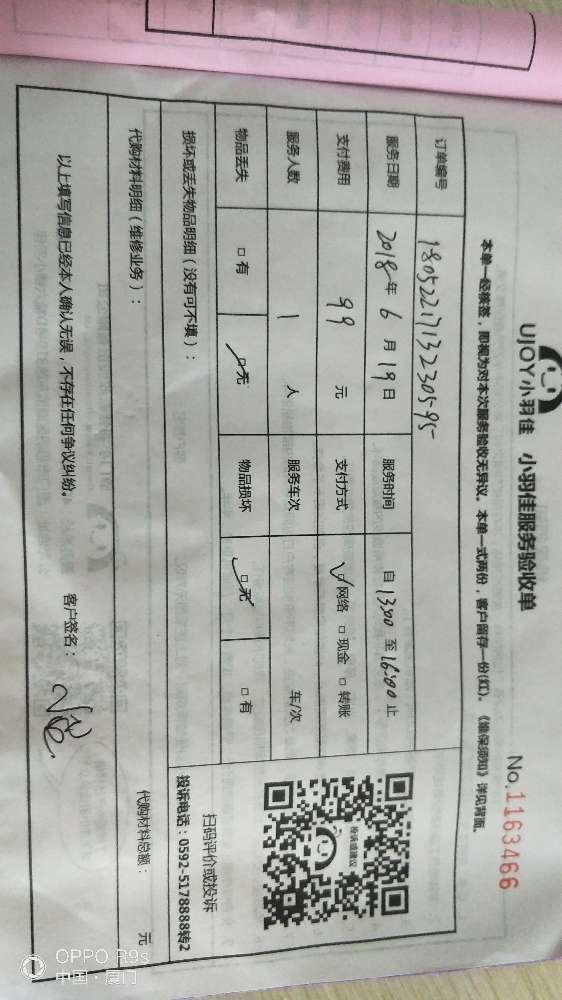 UJOY小羽佳 小羽佳服务验收单
No.1163466
本单一经核签,即视为对本次服务验收无异议。本单一式两份,客户留存一份(红)。《维保须知》详见背面。
订单编号 18052217132230595
服务日期 2018年6月19日 服务时间 自13:00至16:00止
支付费用 99 元 支付方式 ☑网络 □现金 □转账
服务人数 1 人 服务车次 车/次
物品丢失 □有 ☑无 物品损坏 ☑无 □有
投诉或建议
扫码评价或投诉
投诉电话:0592-5178888转2
损坏或丢失物品明细(没有可不填):
代购材料明细(维修业务): 代购材料总额: 元
以上填写信息已经本人确认无误,不存在任何争议纠纷。 客户签名:
OPPO R9s
中国·厦门